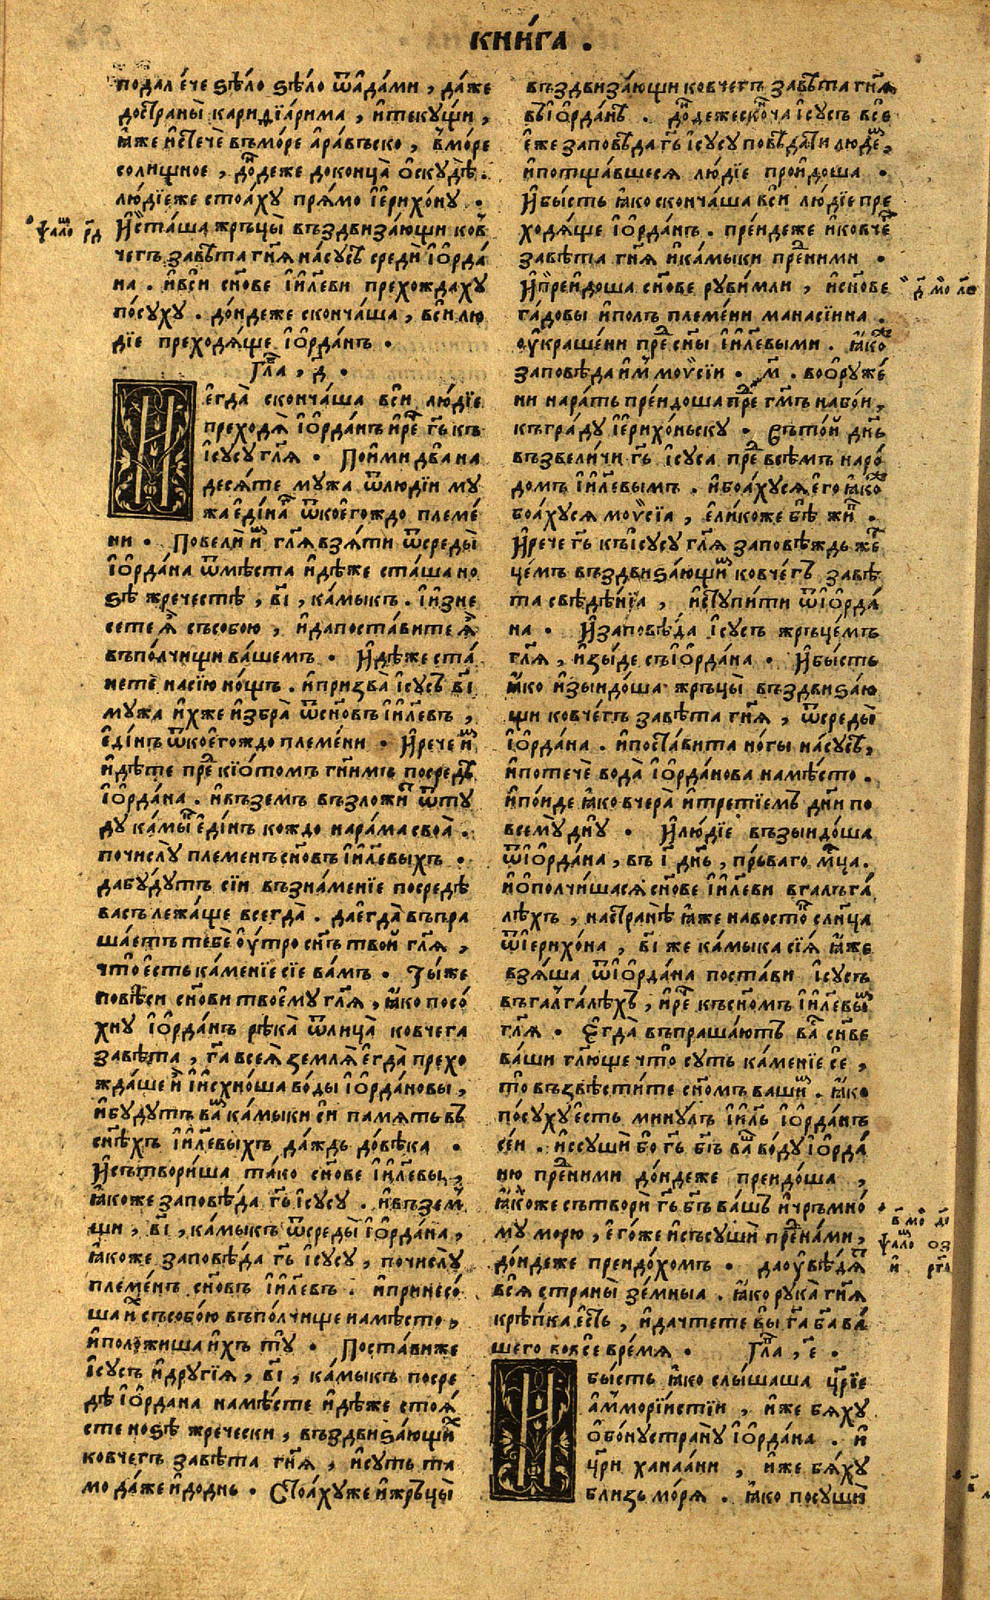 книга .
подалече ѕѣло ѕѣло ѿадами , даже
достраны каридїарима , итекущи ,
ꙗже истече въморе аравьско , вморе
солищное , дондеже доконца оскудѣ .
людїеже стоаху прямо їерихону .
Ѱало рд
Исташа жръцы въздвизающи ков
чегъ завѣта гн҃я насусѣ среди їорда
на . ивси сн҃ове їил҃еви прехождаху
посуху . дондеже скончаша , вси лю
дїе преходяще їорданъ .
Гла , д҃ .
Иегда скончаша вси людїе
преходя їорданъ ире г҃ь къ
їсусу гл҃я . Поими два на
десяте мужа ѿлюдїи му
жа едина ѿкоегождо племе
ни . Повели и гл҃я взяти ѿсреды
їордана ѿмѣста идѣже сташа но
ѕѣ жречестѣ , в҃і , камыкъ . Їизне
сете я съсобою , идапоставите я
въполчищи вашемъ . Идѣже ста
нете насїю нощь . ипризва їсусъ в҃і
мужа ихже избра ѿсн҃овъ їил҃евъ ,
единъ ѿкоегождо племени . Ирече и
идѣте пре кїотомъ гн҃имъ посредѣ
їордана . ивъземъ възложи ѿту
ду камы единъ кождо нарама своа .
почислу племенъ сн҃овъ їил҃евыхъ .
дабудутъ сїи възнаменїе посредѣ
васъ лежаще всегда . даегда въпра
шаетъ тебе оутро сн҃ъ твой гл҃я ,
что есть каменїе сїе вамъ . Тыже
повѣси сн҃ови твоему гл҃я , ꙗко посо
хну їорданъ рѣка ѿлица ковчега
завѣта , г҃а всея земля егда прехо
ждаше и їисхноша воды їордановы ,
ибудутъ ва камыки си память въ
сн҃ѣхъ їил҃евыхъ даждь довѣка .
Исътвориша тако сн҃ове їил҃евы ,
ꙗкоже заповѣда г҃ь їсусу . ивъзем
щи , в҃і , камыкъ ѿсреды їордана ,
ꙗкоже заповѣда г҃ь їсусу , почислу
племенъ сн҃овъ їил҃евъ . ипринесо
ша и съсобою въполчище намѣсто ,
иположиша ихъ ту . Поставиже
їсусъ идругїя , в҃і , камыкъ посре
дѣ їордана намѣсте идѣже стоя
сте ноѕѣ жречески , въздвиѕающи
ковчегъ завѣта гн҃я , исуть та
мо даже идоднь . Стоахуже ижръцы
въздвизающи ковчегъ завѣта гн҃я
въїорданѣ . дондежескоча їсусъ все
еже заповѣда г҃ь їсусу повѣдати люде ,
ипотщавшеся людїе проидоша .
Ибысть ꙗко скончаша вси людїе пре
ходяще їорданъ . преидеже иковче
завѣта гн҃я икамыки преними .
Ипреидоша сн҃ове рувимли , исн҃ове
гадовы иполъ племени манасїина .
оукрашени пре сн҃ы їил҃евыми . ꙗко
заповѣда им моѵсїи . м҃ . вооруже
ни нарать преидоша пре гм҃ъ набои ,
къграду їерихоньску . Вътой дн҃ь
възвеличи г҃ь їсуса пре всѣмъ наро
домъ їил҃евымъ . ибоахуся его ꙗко
боахуся моѵсїа , еликоже бѣ жи .
Ирече г҃ь къїсусу гл҃я заповѣждь же
цемъ въздвиѕающи ковчегъ завѣ
та свѣдѣнїа , иступити ѿїорда
на . Изаповѣда їсусъ жръцемъ
гл҃я , изыде съїордана . Ибысть
ꙗко изындоша жръцы въздвиѕаю
щи ковчегъ завѣта гн҃я , ѿсреды
їордана . ипоставита ногы насусѣ ,
ипотече вода їорданова намѣсто .
ипоиде ꙗко вчера итретїемъ дн҃и по
всему дн҃у . Илюдїе възындоша
ѿїордана , въ і҃ дн҃ь , прьваго мц҃а .
иополчишася сн҃ове їил҃еви вгалъга
лѣхъ , настранѣ ꙗже навосто слн҃ца
ѿїерихона , в҃і же камыка сїя ꙗже
взяша ѿїордана постави їсусъ
въгалгалѣхъ , ире късн҃омъ їил҃евы
гл҃я . Егда въпрашаютъ ва сн҃ве
ваши гл҃юще что суть каменїе се ,
то възвѣстите сн҃омъ ваши . ꙗко
посуху есть минулъ їил҃ь їорданъ
сеи . иссуши бо г҃ь б҃ъ ва воду їорда
ню преними дондеже преидоша ,
ꙗкоже сътвори г҃ь б҃ъ вашъ ичръмно
му морю , егоже исъсуши пренами ,
дондеже преидохомъ . даоувѣдя
вся страны земныа . ꙗко рука гн҃я
крѣпка есть , идачтете вы г҃а б҃а ва
шего вовсе время . Гла , е҃ .
Ибысть ꙗко слышаша цр҃їе
аммориистїи , иже бяху
обонустрану їордана . и
цр҃и ханаани , иже бяху
близь моря . ꙗко посуши